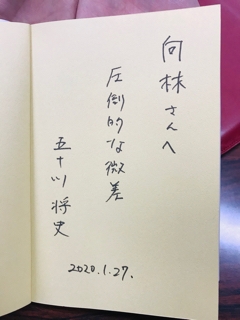 向林さんへ
圧倒的な微差
五十川将史
2020.1.27.